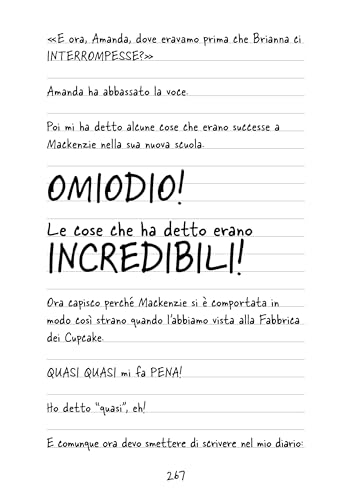 «E ora, Amanda, dove eravamo prima che Brianna ci
INTERROMPESSE?»
Amanda ha abbassato la voce.
Poi mi ha detto alcune cose che erano successe a
Mackenzie nella sua nuova scuola.
OMIODIO!
Le cose che ha detto erano
INCREDIBILI!
Ora capisco perché Mackenzie si è comportata in
modo così strano quando l'abbiamo vista alla Fabbrica
dei Cupcake.
QUASI QUASI mi fa PENA!
Ho detto "quasi", eh!
E comunque ora devo smettere di scrivere nel mio diario:
267